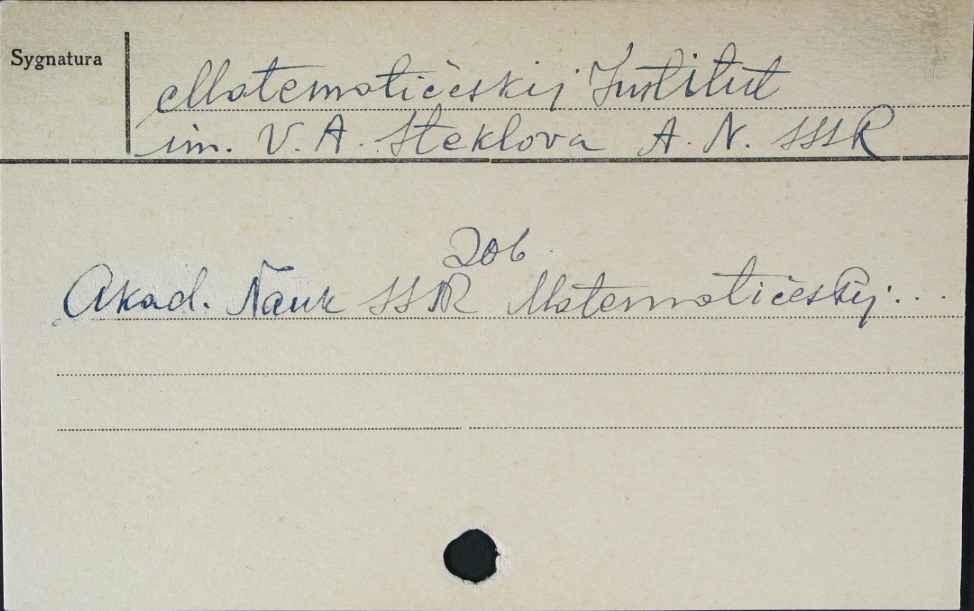 Sygnatura
Matematičeskij Institut
im. V. A. Steklova A. N. SSSR
zob.
Akad. Nauk SSSR Matematičeskij...